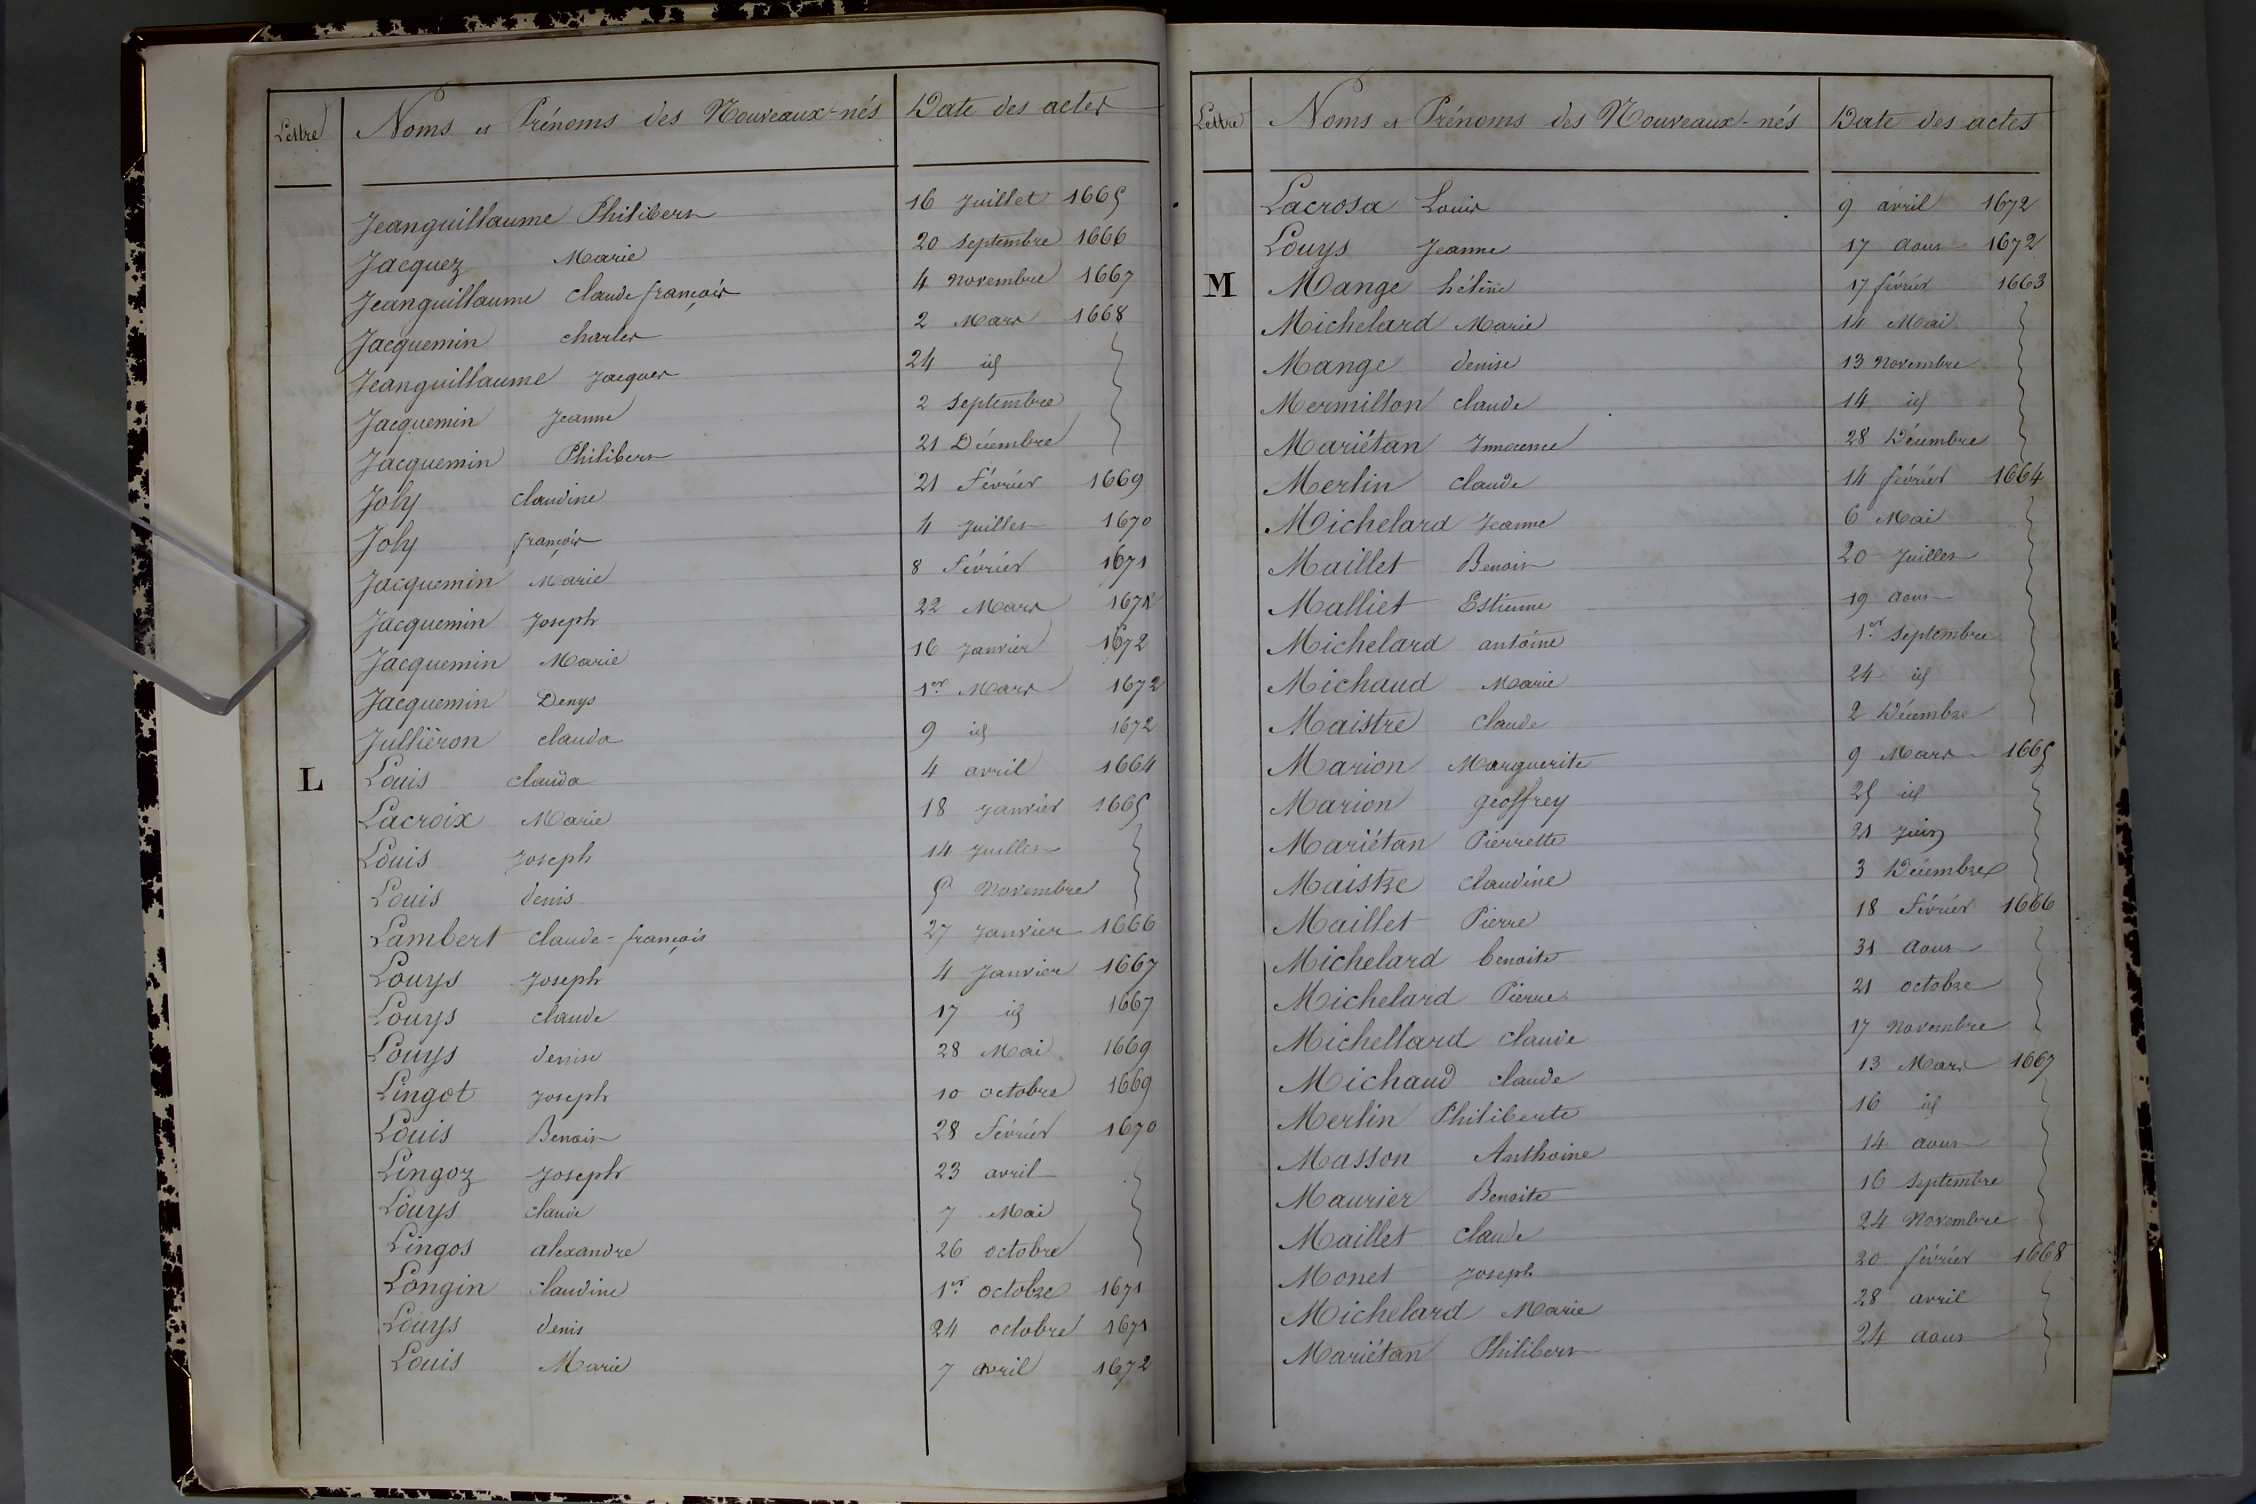 Lettre Noms et Prénoms des Nouveaux-nés Date des actes
Jeanguillaume Philibert 16 Juillet 1665
Jacquez Marie 20 septembre 1666
Jeanguillaume claude françois 4 novembre 1667
Jacquemin charles 2 Mars 1668
Jeanguillaume Jacques 24 id
Jacquemin Jeanne 2 septembre
Jacquemin Philibert 21 Décembre
Joly claudine 21 Février 1669
Joly françois 4 Juillet 1670
Jacquemin Marie 8 Février 1671
Jacquemin Joseph 22 Mars 1671
Jacquemin Marie 16 Janvier 1672
Jacquemin Denys 1er Mars 1672
Julliéron clauda 9 id 1672
L Louis clauda 4 avril 1664
Lacroix Marie 18 Janvier 1665
Louis Joseph 14 Juillet
Louis denis 5 Novembre
Lambert claude-françois 27 Janvier 1666
Louys Joseph 4 Janvier 1667
Louys claude 17 id 1667
Louys denise 28 Mai 1669
Lingot Joseph 10 octobre 1669
Louis Benoit 28 Février 1670
Lingoz Joseph 23 avril
Louys claude 7 Mai
Lingos alexandre 26 octobre
Longin claudine 1er octobre 1671
Louys denis 24 octobre 1671
Louis Marie 7 avril 1672
Lettre Noms et Prénoms des Nouveaux-nés Date des actes
Lacrosa Louis 9 avril 1672
Louys Jeanne 17 aout 1672
M Mange hélène 17 février 1663
Michelard Marie 14 Mai
Mange denise 13 Novembre
Mermillon claude 14 id
Mariétan Innocence 28 Décembre
Merlin claude 14 février 1664
Michelard Jeanne 6 Mai
Maillet Benoit 20 Juillet
Malliet Estienne 19 aout
Michelard antoine 1er septembre
Michaud Marie 24 id
Maistre claude 2 Décembre
Marion Marguerite 9 Mars 1665
Marion geoffrey 25 id
Mariétan Pierrette 21 Juin
Maistre claudine 3 Décembre
Maillet Pierre 18 Février 1666
Michelard benoite 31 aout
Michelard Pierre 21 octobre
Michellard claude 17 Novembre
Michaud claude 13 Mars 1667
Merlin Philiberte 16 id
Masson Anthoine 14 aout
Maurier Benoite 16 septembre
Maillet claude 24 Novembre
Monet Joseph 20 février 1668
Michelard Marie 28 avril
Mariétan Philibert 24 aout